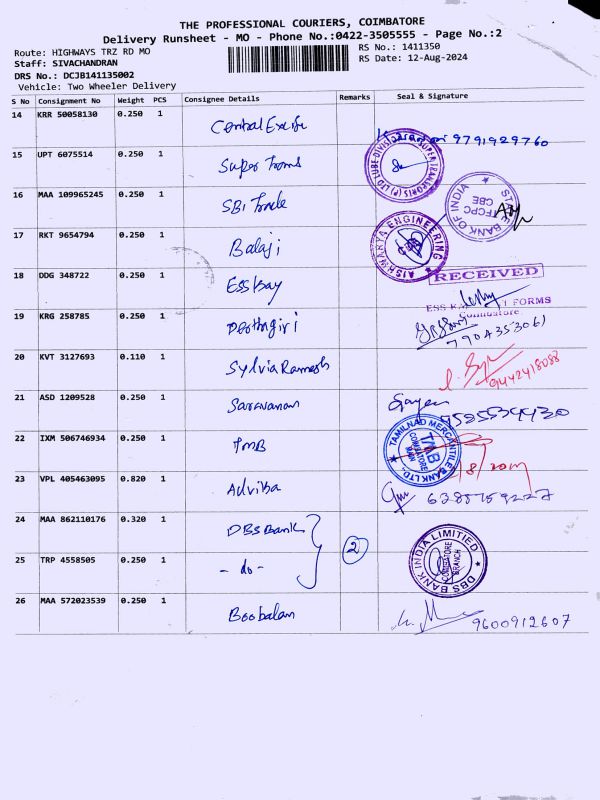 THE PROFESSIONAL COURIERS, COIMBATORE
Delivery Runsheet - MO - Phone No.:0422-3505555 - Page No.:2
Route: HIGHWAYS TRZ RD MO
RS No.: 1411350
Staff: SIVACHANDRAN
RS Date: 12-Aug-2024
DRS No.: DCJB141135002
Vehicle: Two Wheeler Delivery
S No Consignment No Weight PCS Consignee Details Remarks Seal & Signature
14 KRR 50058130 0.250 1 Central Excise 9791929760
15 UPT 6075514 0.250 1 Super Trans SUPER TRANSPORTS (P) LTD TUBE DIVISION
16 MAA 109965245 0.250 1 SBI Trade STATE BANK OF INDIA TFCPC CBE
17 RKT 9654794 0.250 1 Balaji AISHWARYA ENGINEERING
18 DDG 348722 0.250 1 Ess Kay RECEIVED
ESS FORMS
Coimbatore
19 KRG 258785 0.250 1 7904353061
20 KVT 3127693 0.110 1 Sylvia Ramesh 9442418088
21 ASD 1209528 0.250 1 Saravanan
22 IXM 506746934 0.250 1 TMB TAMILNAD MERCANTILE BANK LTD. TMB COIMBATORE MAIN
23 VPL 405463095 0.820 1
24 MAA 862110176 0.320 1 DBS Bank 2 DBS BANK INDIA LIMITED COIMBATORE BRANCH
25 TRP 4558505 0.250 1 - do -
26 MAA 572023539 0.250 1 Boobalan 9600912607